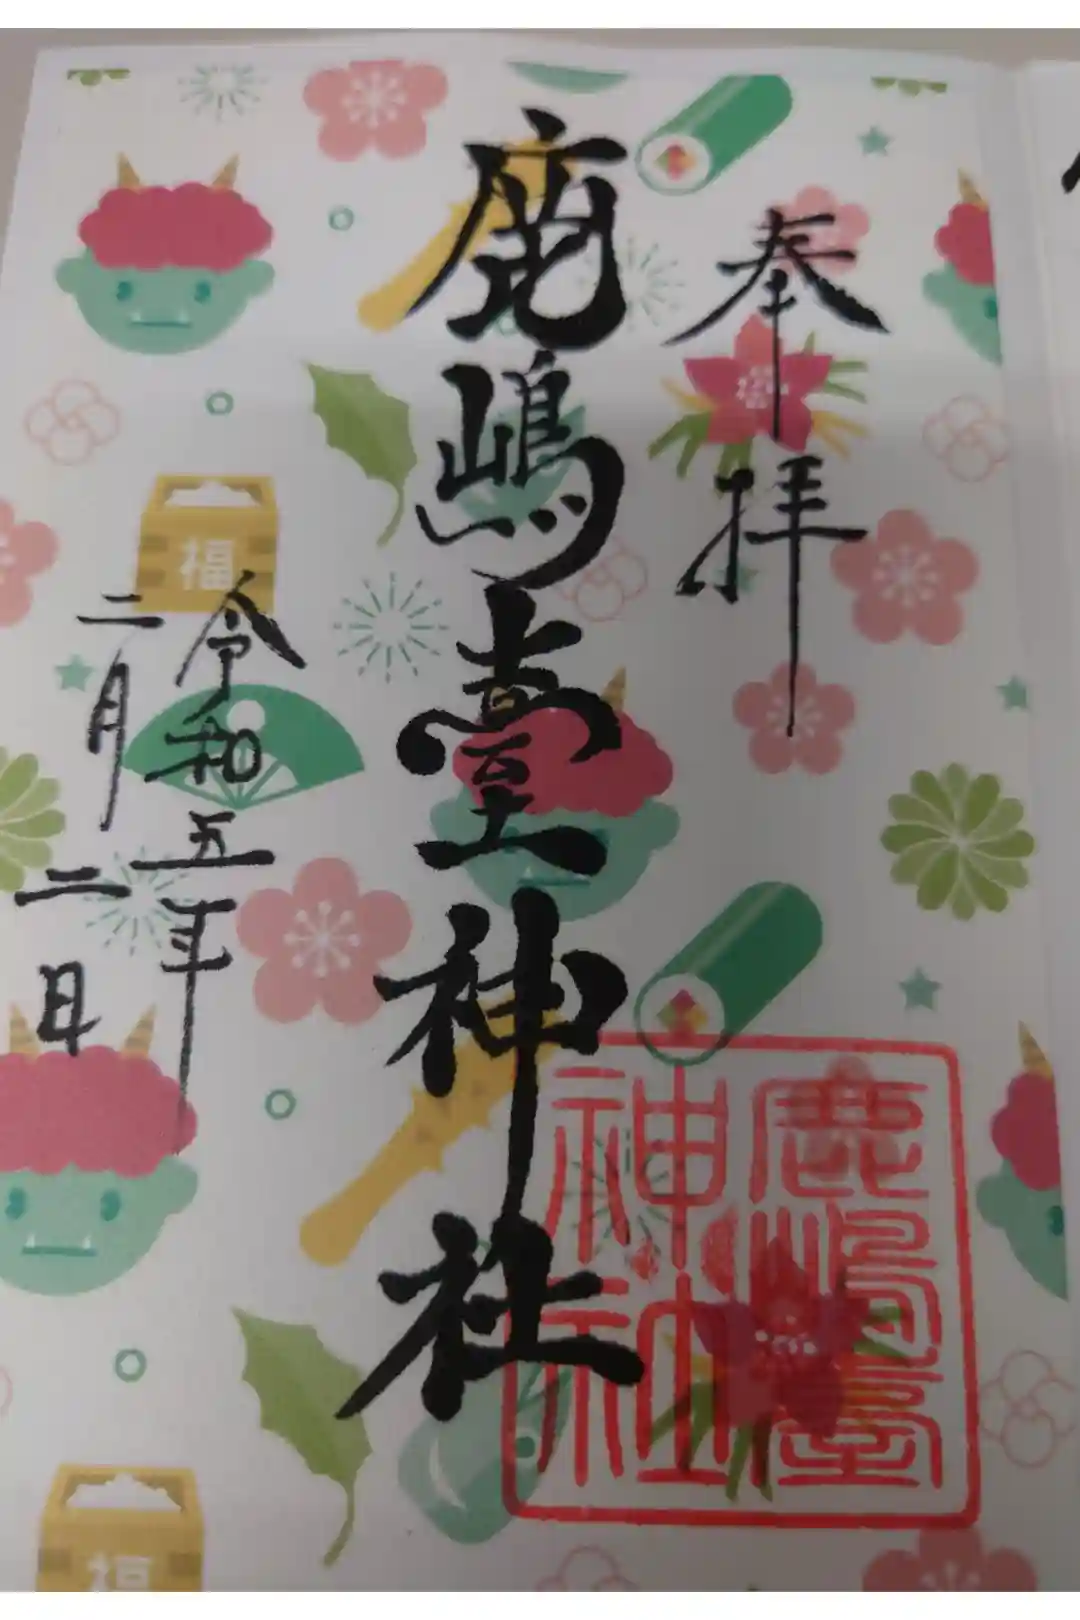 奉拝
鹿嶋臺神社
令和五年
二月二日
福
福
鹿嶋臺
神社